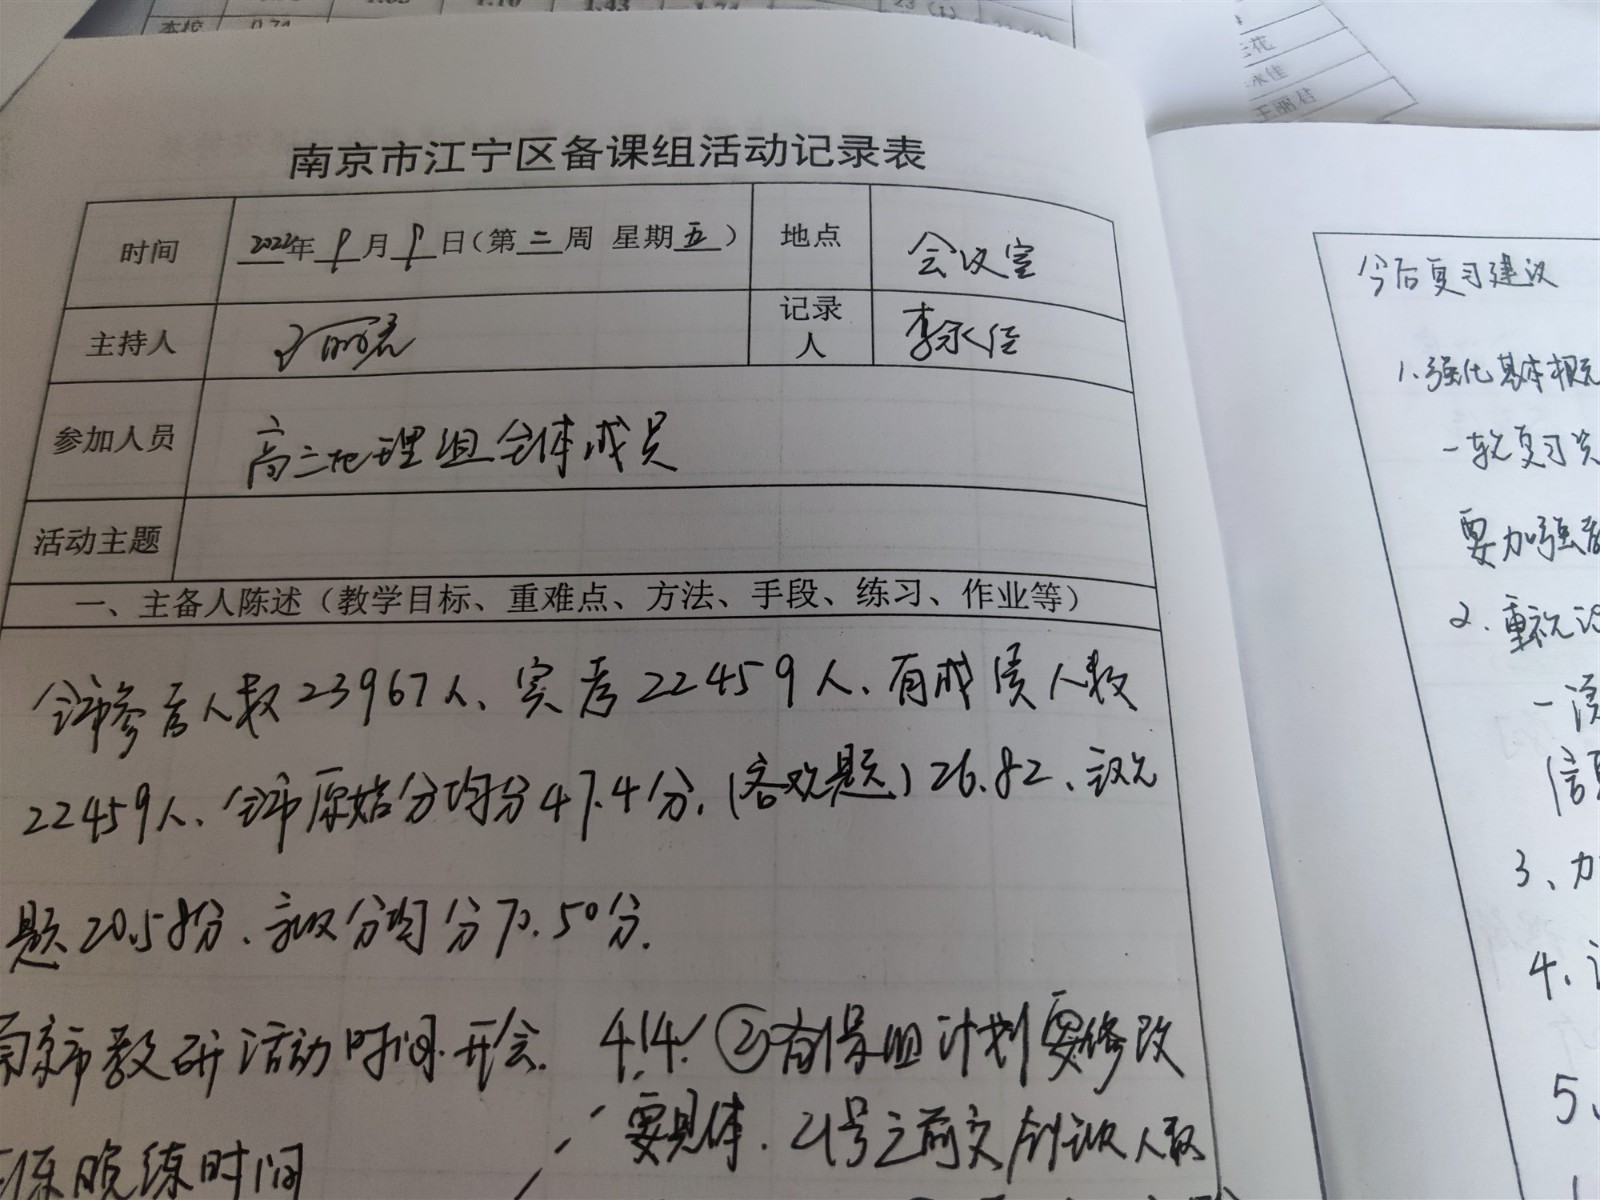 本校 0.74
1.43
花
永佳
王丽君
南京市江宁区备课组活动记录表
时间 2022年9月9日(第二周 星期五) 地点 会议室
主持人 王丽君 记录人 李永佳
参加人员 高三地理组全体成员
活动主题
一、主备人陈述(教学目标、重难点、方法、手段、练习、作业等)
全市参考人数23967人、实考22459人、有成绩人数
22459人、全市原始分均分47.4分,(客观题)26.82、主观
题20.58分、赋分均分70.50分.
南京市教研活动时间.开会. 4.14. ②备课组计划要修改
晚练时间 要具体. 21号之前交
今后复习建议
1.强化基本概
一轮复习
要加强
2.重视
一
信
3、加
4、
5、